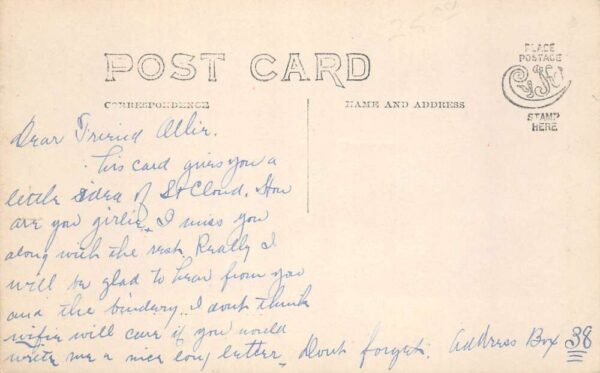 POST CARD
CORRESPONDENCE
NAME AND ADDRESS
PLACE
POSTAGE
STAMP
HERE
Dear Friend Ollie.
This card gives you a
little idea of St Cloud. How
are you girlie. I miss you
along with the rest. Really I
will be glad to hear from you
and the bindery. I dont think
wifie will care if you would
write me a nice long letter. Dont forget. Address Box 38